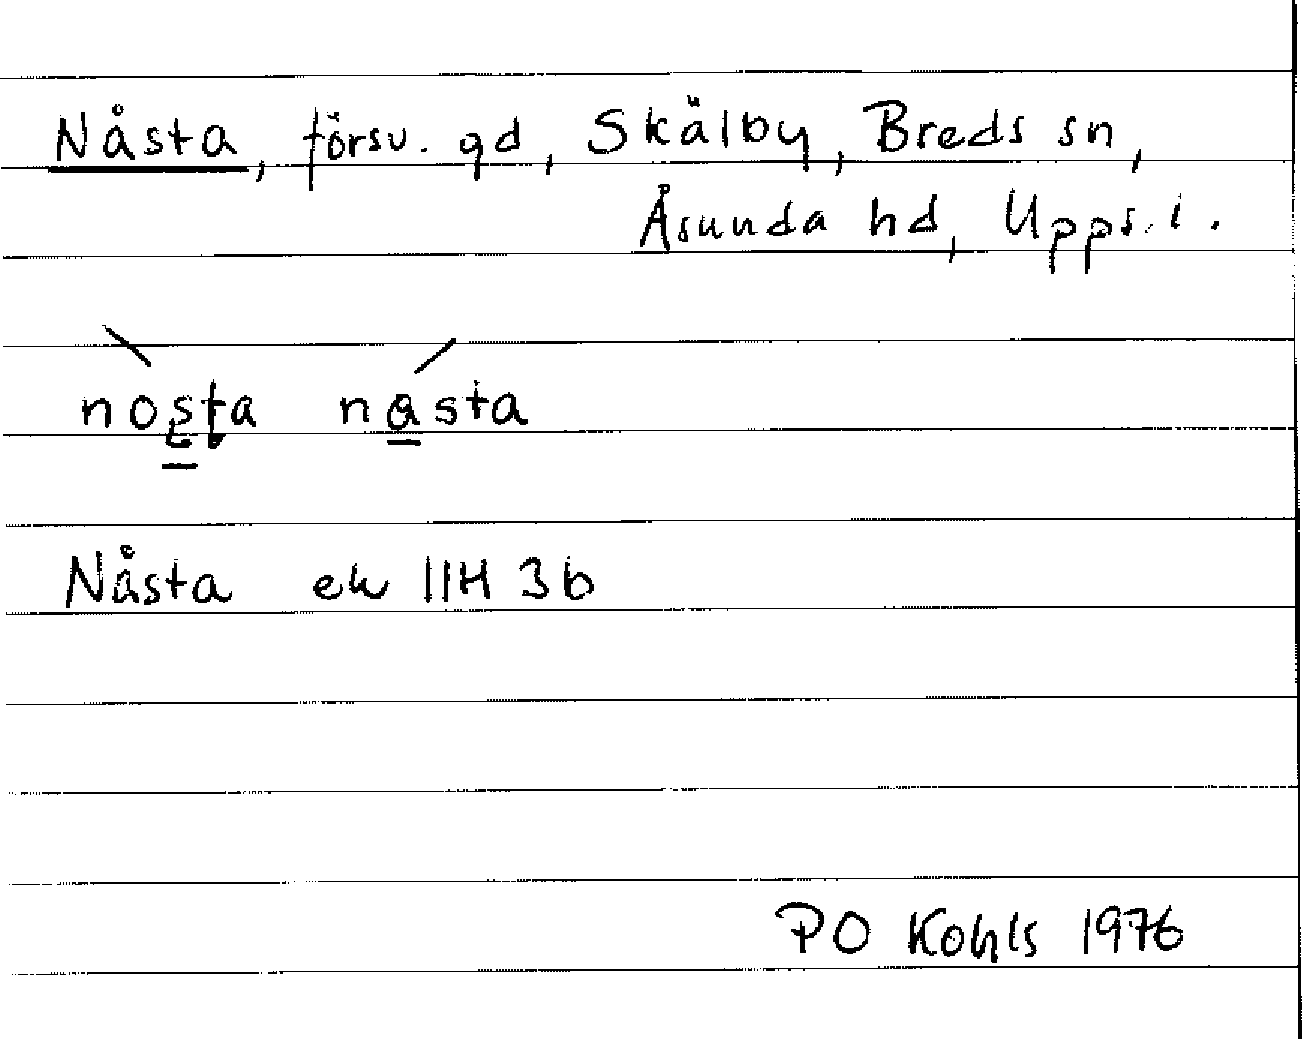 Nåsta, försv. gd, Skälby, Breds sn,
Åsunda hd, Upps. l.
nosta nasta
Nåsta ek 11H 3b
PO Kohls 1976